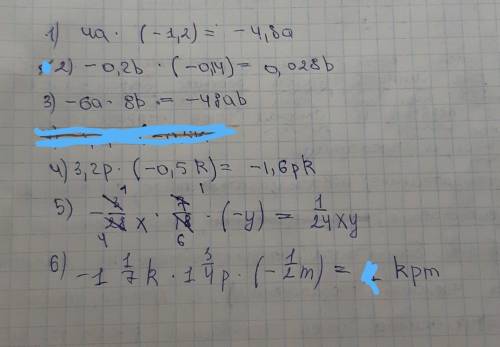 1) 4a · (-1,2) = -4,8a
2) -0,2b · (-0,14) = 0,028b
3) -6a · 8b = -48ab
4) 3,2p · (-0,5k) = -1,6pk
5) x · · (-y) = 1/24 xy
6) -1 1/7 k · 1 3/4 p · (-1/2 m) = kpm